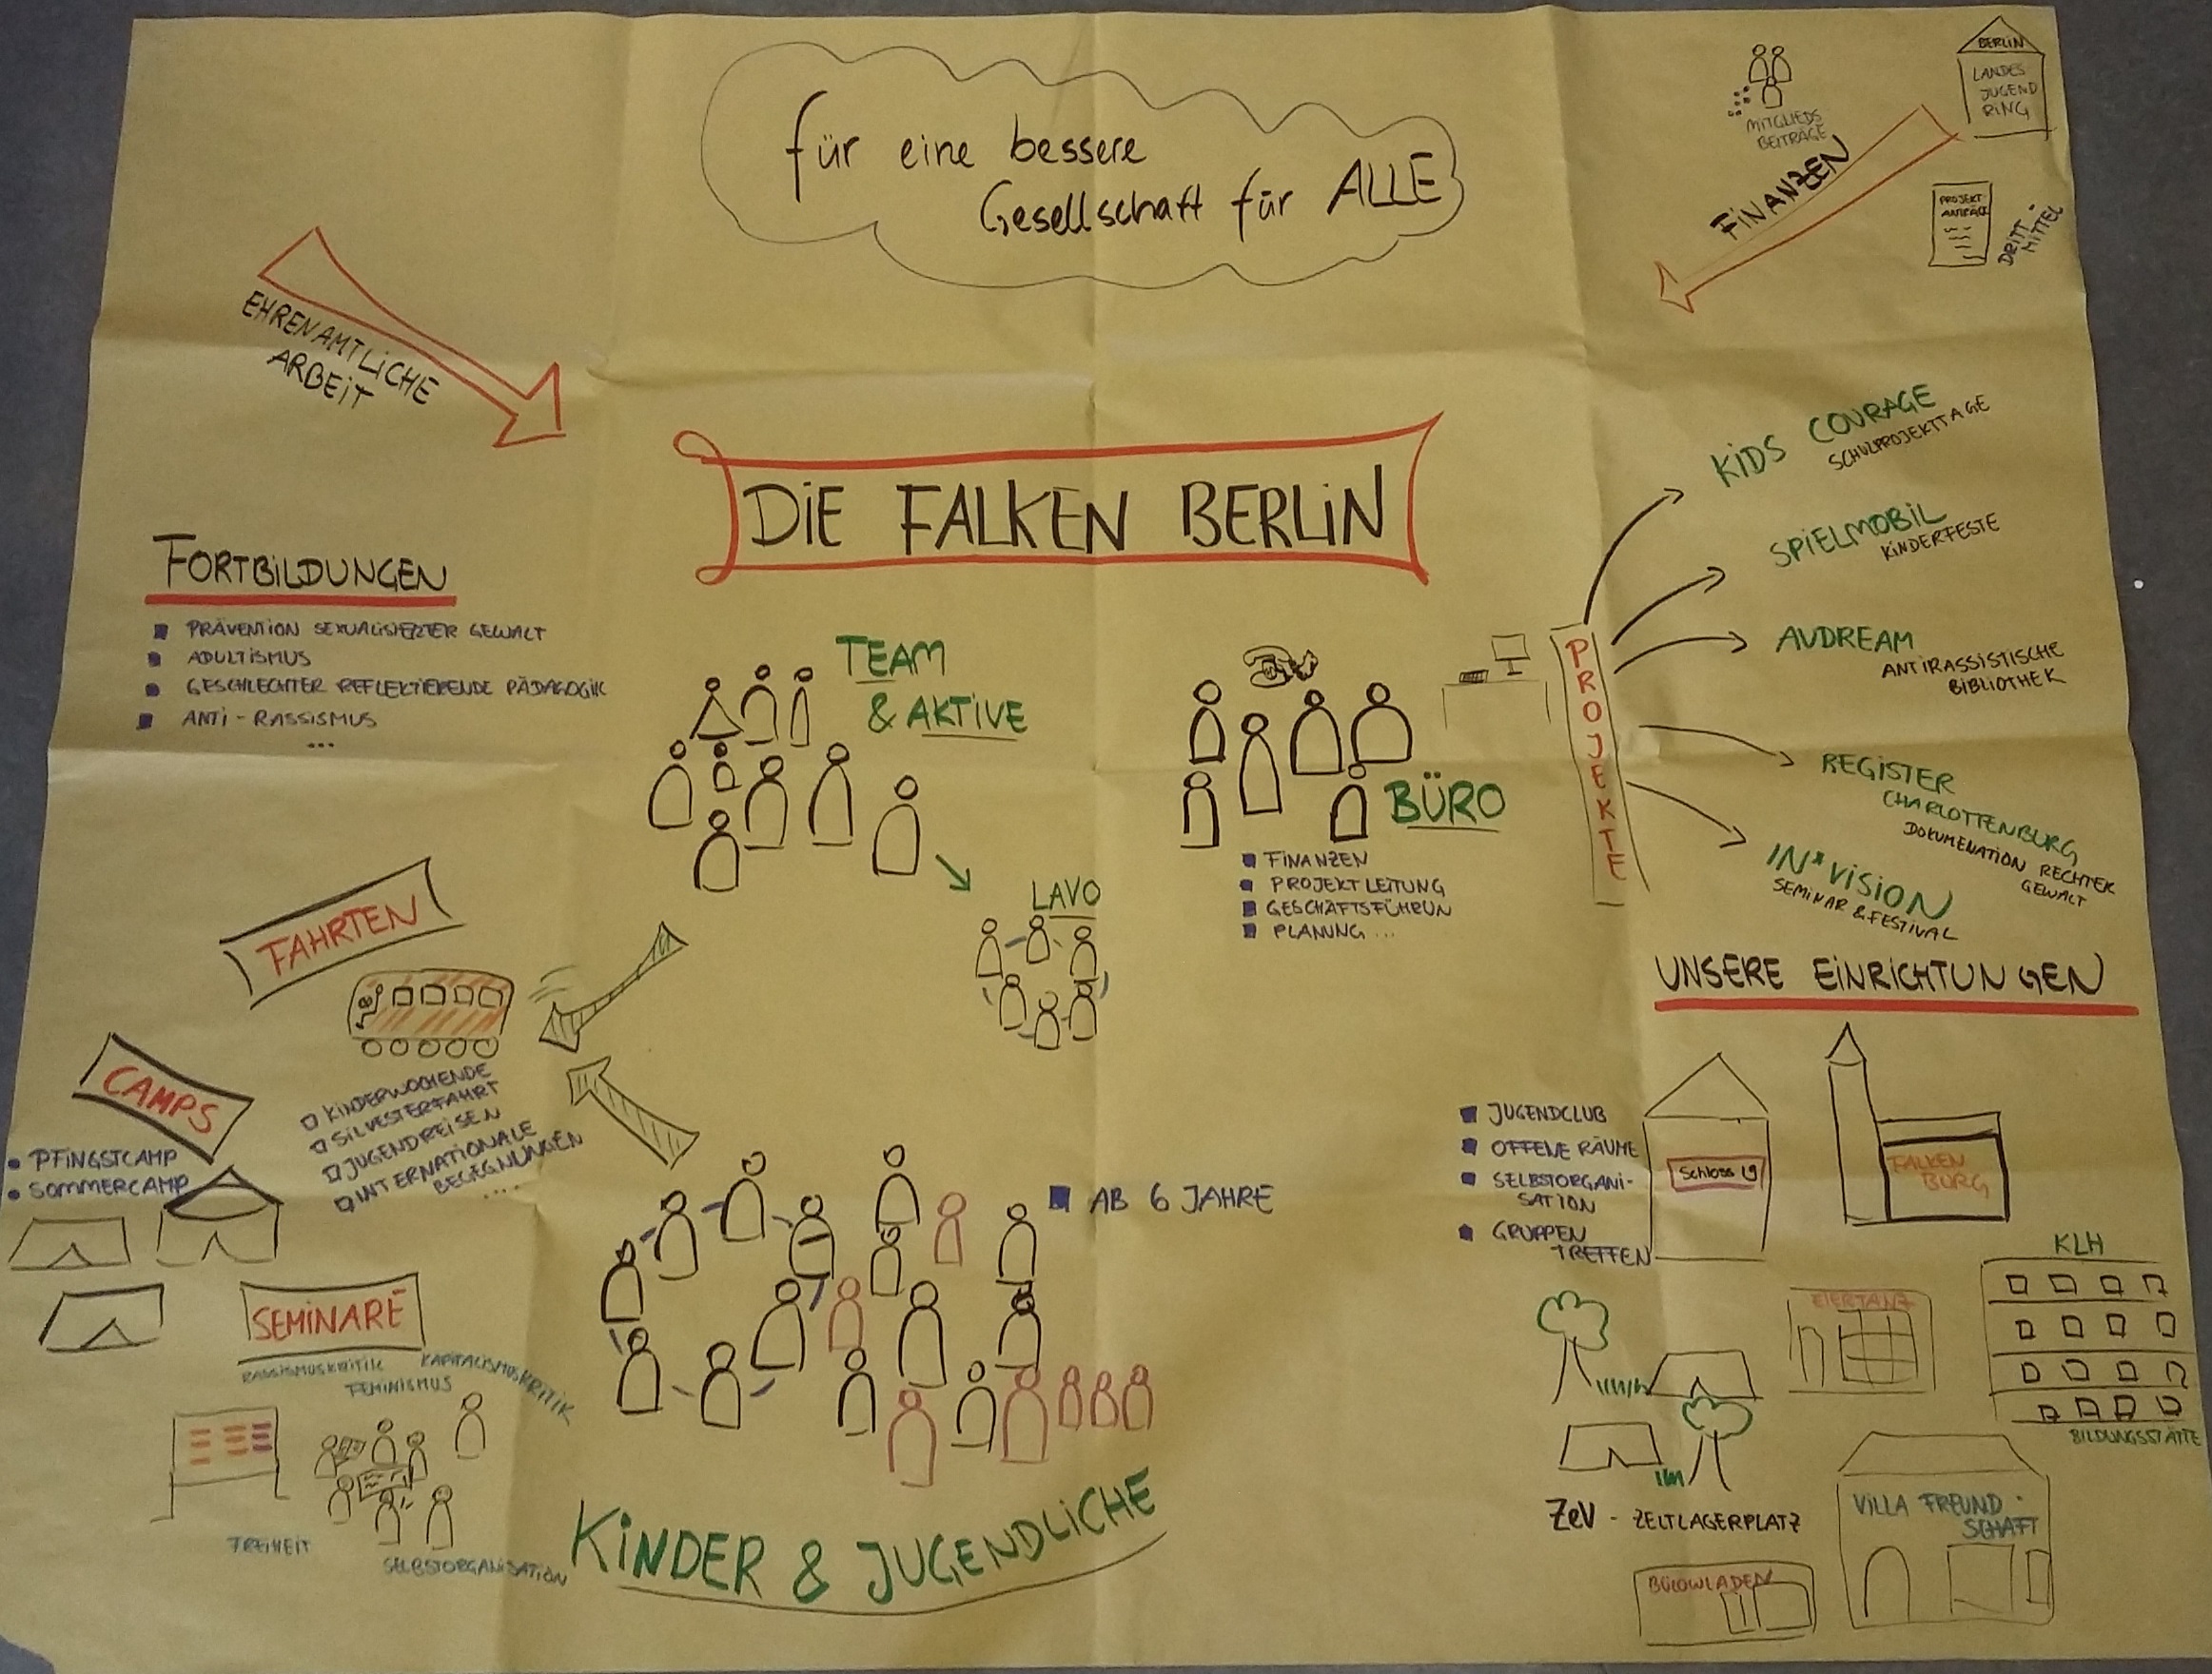 für eine bessere
Gesellschaft für ALLE
MITGLIEDS
BEITRÄGE
BERLIN
LANDES
JUGEND
RING
FINANZEN
PROJEKT
ANTRÄGE
DRITT-
MITTEL
EHRENAMTLICHE
ARBEIT
DIE FALKEN BERLIN
FORTBILDUNGEN
PRÄVENTION SEXUALISIERTER GEWALT
ADULTISMUS
GESCHLECHTER REFLEKTIERENDE PÄDAGOGIK
ANTI-RASSISMUS
...
TEAM
& AKTIVE
LAVO
BÜRO
FINANZEN
PROJEKTLEITUNG
GESCHÄFTSFÜHRUN
PLANUNG ...
PROJEKTE
KIDS COURAGE
SCHULPROJEKTTAGE
SPIELMOBIL
KINDERFESTE
AUDREAM
ANTIRASSISTISCHE
BIBLIOTHEK
REGISTER
CHARLOTTENBURG
DOKUMENATION RECHTER
GEWALT
IN*VISION
SEMINAR & FESTIVAL
FAHRTEN
KINDERWOCHENDE
SILVESTERFAHRT
JUGENDREISEN
INTERNATIONALE
BEGEGNUNGEN
....
CAMPS
PFINGSTCAMP
SOMMERCAMP
SEMINARE
RASSISMUSKRITIK
KAPITALISMUSKRITIK
FEMINISMUS
FREIHEIT
SELBSTORGANISATION
AB 6 JAHRE
KINDER & JUGENDLICHE
UNSERE EINRICHTUNGEN
JUGENDCLUB
OFFENE RÄUME
SELBSTORGANI-
SATION
GRUPPEN
TREFFEN
Schloss 19
FALKEN
BURG
KLH
BILDUNGSSTÄTTE
EIERTANZ
ZeV - ZELTLAGERPLATZ
VILLA FREUND-
SCHAFT
BÜLOWLADEN